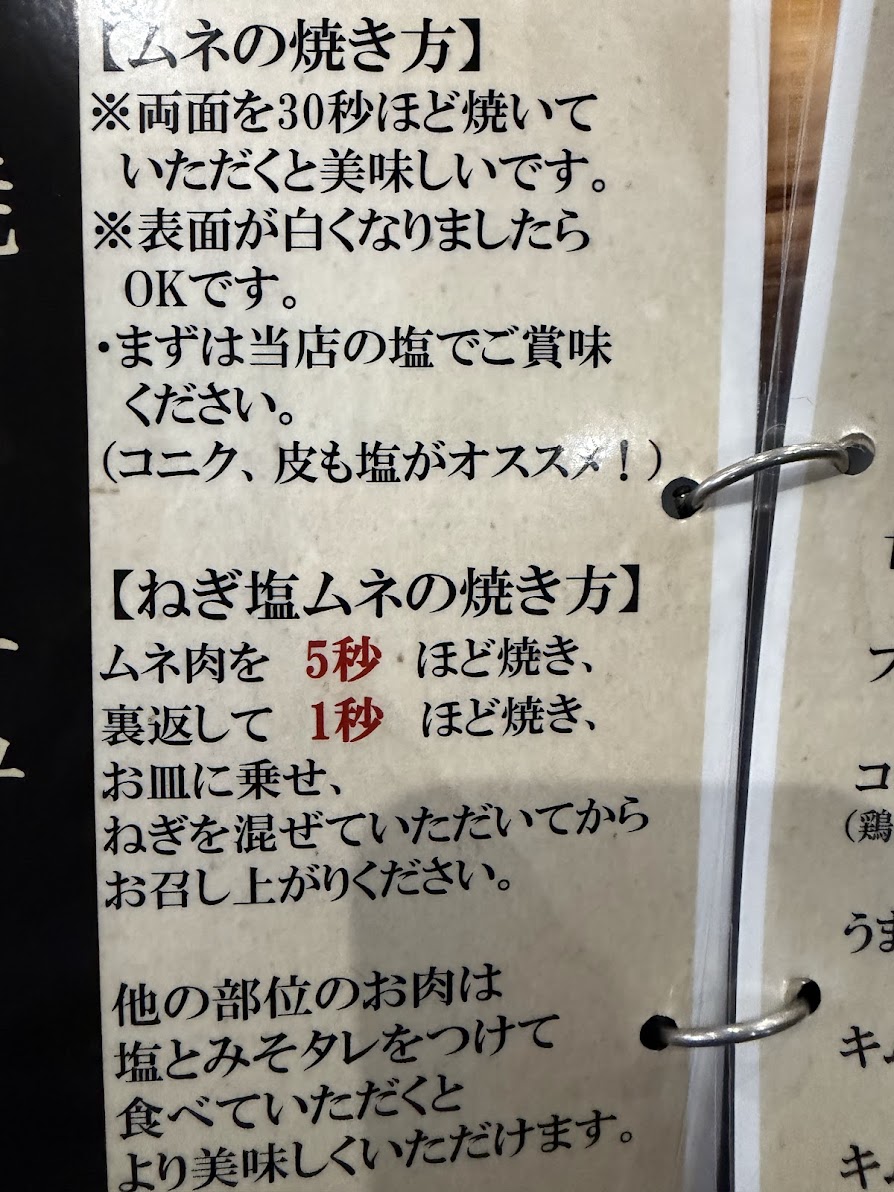 【ムネの焼き方】
※両面を30秒ほど焼いて
いただくと美味しいです。
※表面が白くなりましたら
OKです。
・まずは当店の塩でご賞味
ください。
（コニク、皮も塩がオススメ！）
【ねぎ塩ムネの焼き方】
ムネ肉を 5秒 ほど焼き、
裏返して 1秒 ほど焼き、
お皿に乗せ、
ねぎを混ぜていただいてから
お召し上がりください。
他の部位のお肉は
塩とみそタレをつけて
食べていただくと
より美味しくいただけます。
コ
（鶏
うま
キム
キ